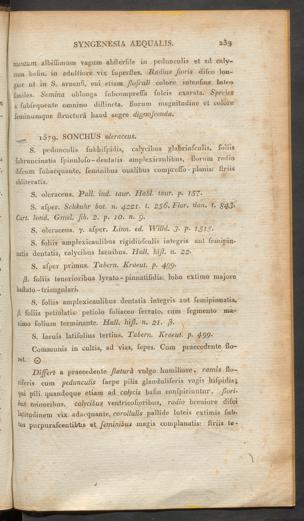 SYNGENESIA AEQUALIS. 239
mentum albissimum vagum absterile in pedunculis et ad caly-
cum basin, in adultiore vix superstes. Radius floris disco lon-
gior ut in S. arvensi, cui etiam flosculi colore intensius lutes-
similes. Semina oblonga subcompressa sulcis exarata. Species
a subsequente omnino distincta, florum magnitudine et colore
seminumque structura haud aegre dignoscenda.
1579. SONCHUS oleraceus.
S. pedunculis subhispidis, calycibus glabriusculis, foliis
subruncinatis spinuloso-dentatis amplexicaulibus, florum radio
discum subaequante, seminibus ovalibus compresso-planis striis
obliteratis.
S. oleraceus. Pall. ind. taur. Habl. taur. p. 157.
S. asper. Schkuhr bot. n. 4221. t. 256. Flor. dan. t. 843.
Cart. lond. Gmel. sib. 2. p. 10. n. 9.
S. oleraceus. γ. asper. Linn. ed. Willd. 3. p. 1515.
S. foliis amplexicaulibus rigidiusculis integris aut semipin-
natis dentatis, calycibus laevibus. Hall. hist. n. 22.
S. asper primus. Tabern. Kraeut. p. 499.
β. foliis tenerioribus lyrato-pinnatifidis: lobo extimo majore
hastato-triangulari.
S. foliis amplexicaulibus dentatis integris aut semipinnatis,
β. foliis petiolatis: petiolo foliaceo serrato, cum segmento ma-
ximo folium terminante. Hall. hist. n. 21. β.
S. laevis latifolius tertius. Tabern. Kraeut. p. 499.
Communis in cultis, ad vias, sepes. Cum praecedente flo-
ret. ⊙
Differt a praecedente statura vulgo humiliore, ramis flo-
riferis cum pedunculis saepe pilis glanduliferis vagis hispidis;
qui pili quandoque etiam ad calycis basin conspiciuntur, flori-
bus minoribus, calycibus ventricosioribus, radio breviore disci
latitudinem vix adaequante, corollulis pallide luteis extimis sub-
tus purpurascentibus et seminibus magis complanatis: striis te-